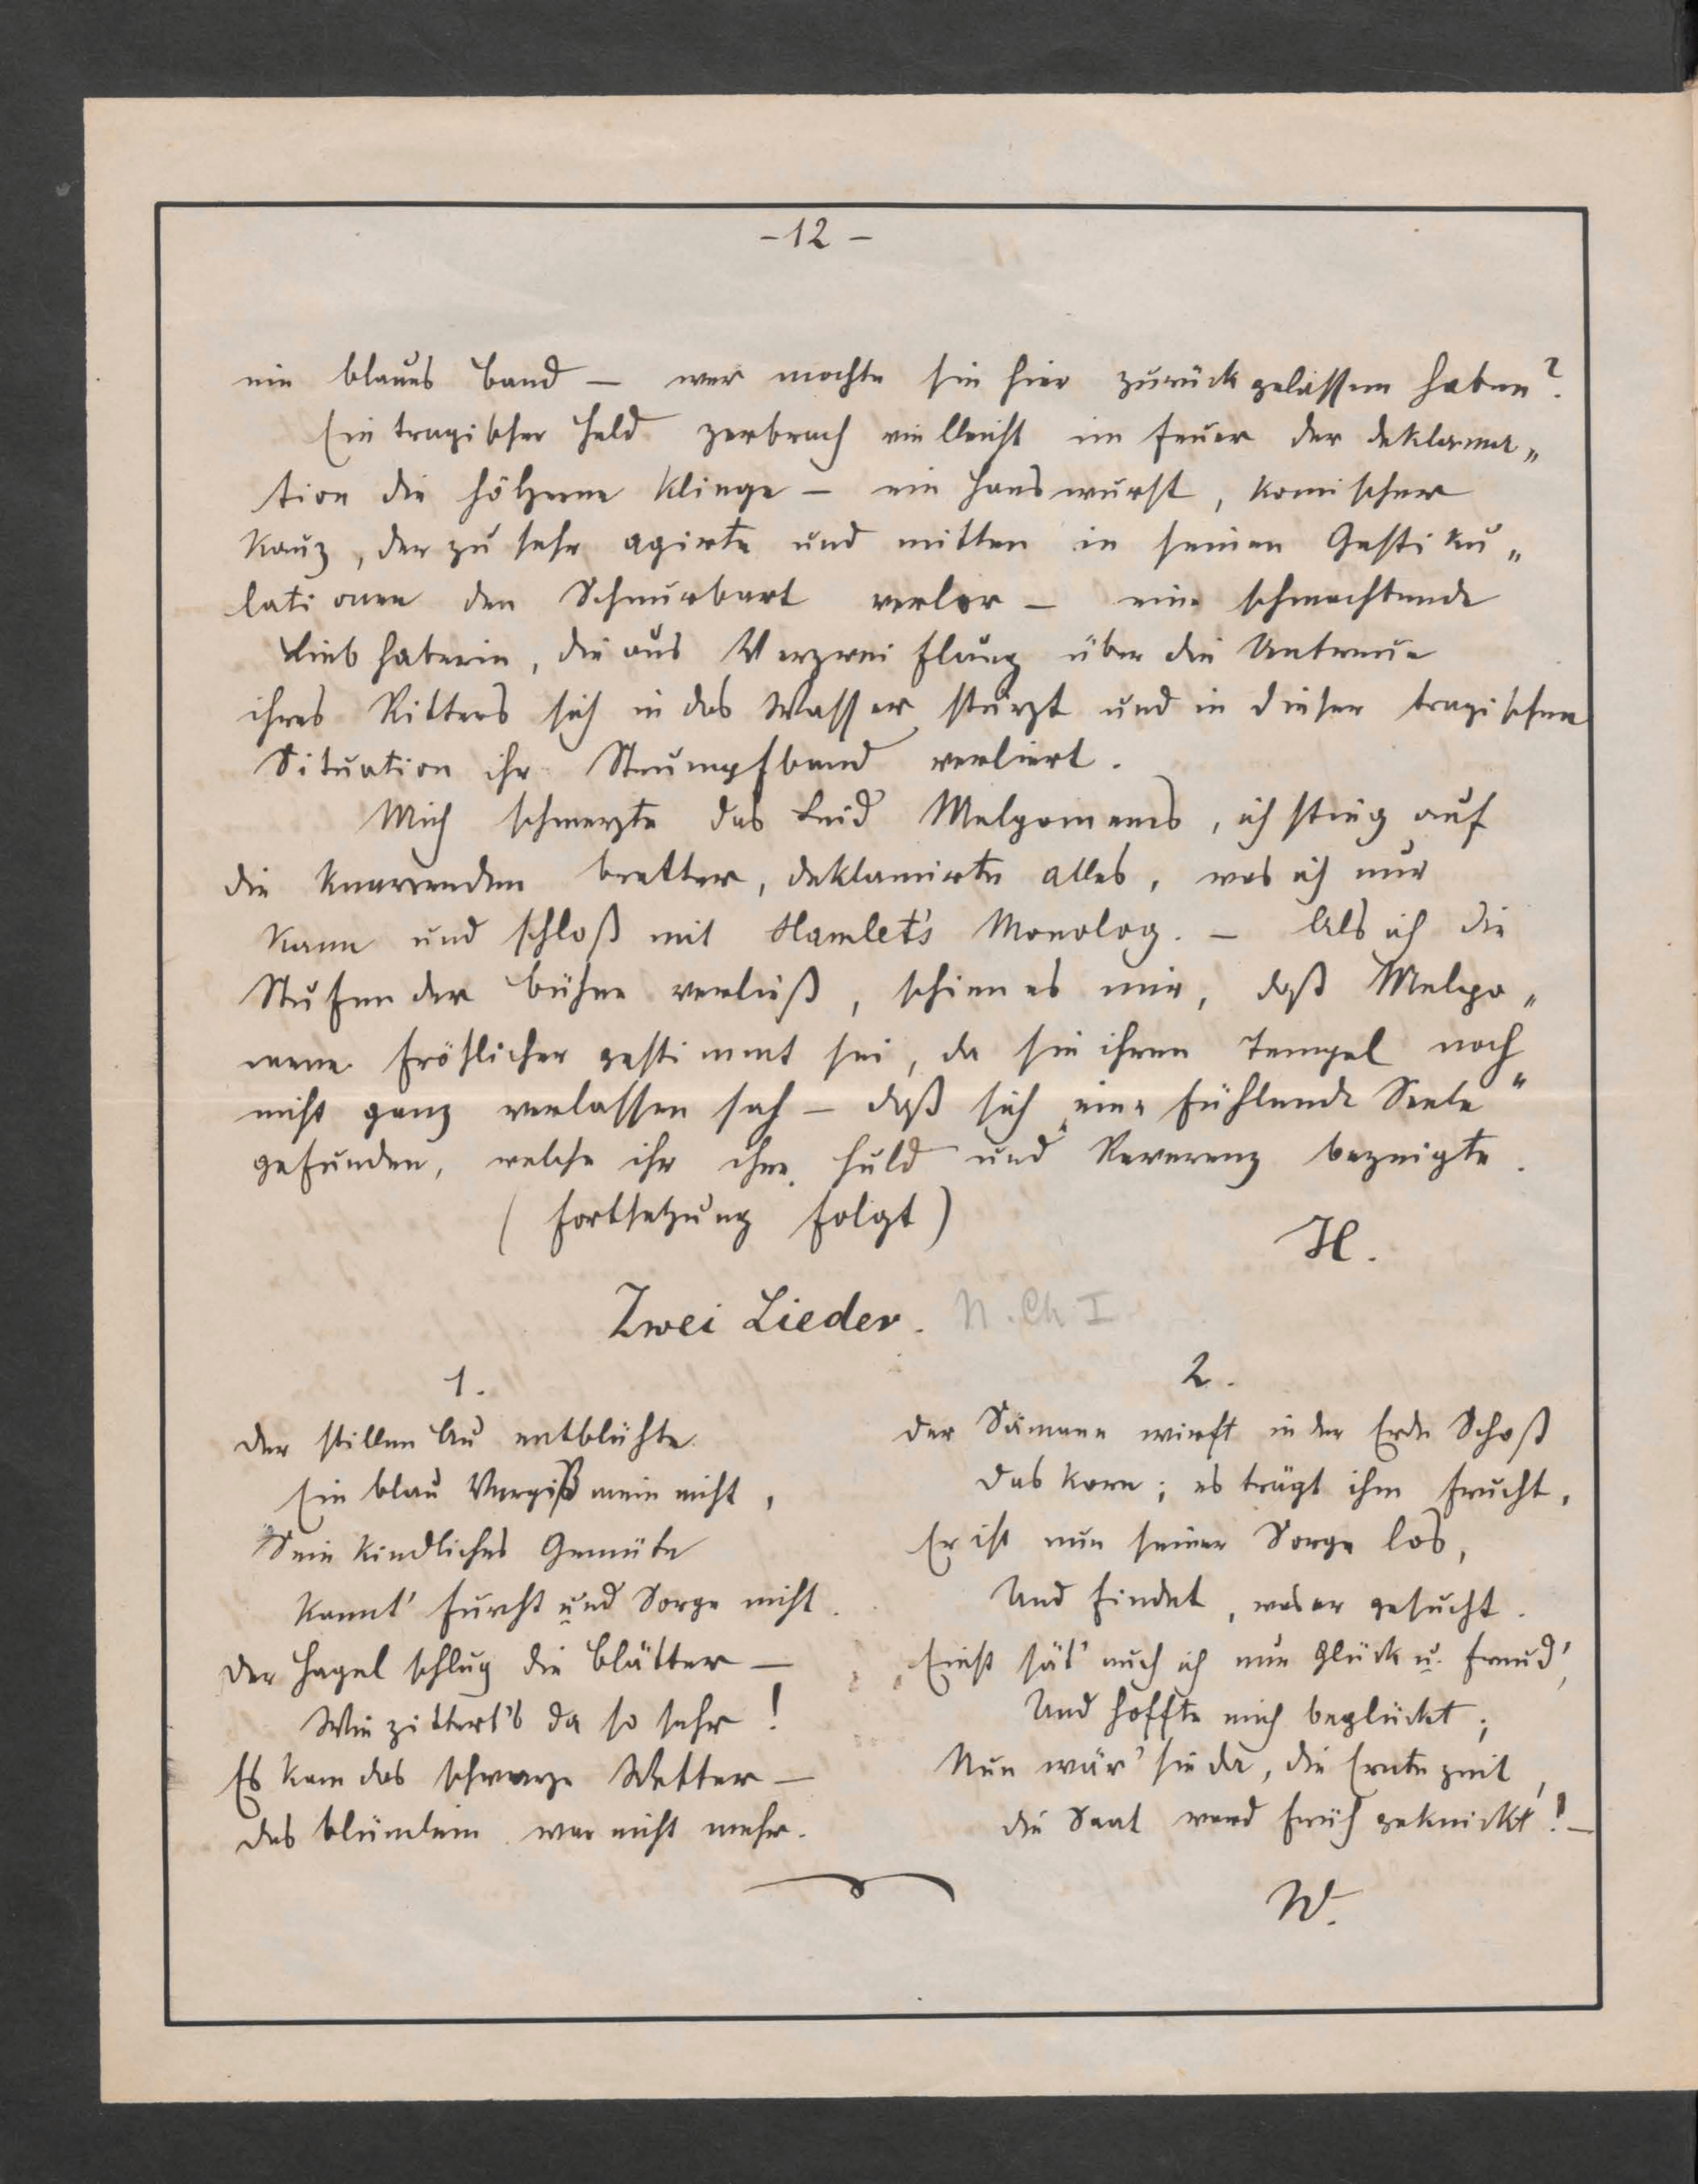 -12-
ein blaues Band — wer mochte sie hier zurückgelassen haben?
Ein tragischer Held zerbrach vielleicht im Feuer der Deklama„
tion die hölzerne Klinge — ein Hanswurst, komischer
Kauz, der zu sehr agirte und mitten in seinen Gestiku„
lationen den Schnurbart verlor — eine schmachtende
Liebhaberin, die aus Verzweiflung über die Untreue
ihres Ritters sich in das Wasser stürzt und in dieser tragischen
Situation ihr Strumpfband verliert.
Mich schmerzte das Leid Melpomenes, ich stieg auf
die knarrenden Bretter, deklamirte alles, was ich nur
kann und schloß mit Hamlet's Monolog. — Als ich die
Stufen der Bühne verließ, schien es mir, daß Melpo„
mene fröhlicher gestimmt sei, da sie ihren Tempel noch
nicht ganz verlassen sah — daß sich „eine fühlende Seele“
gefunden, welche ihr ihre Huld und Reverenz bezeigte.
(Fortsetzung folgt)
H.
Zwei Lieder. N. Ch I
1.
Der stillen Au entblühte
Ein blau Vergißmeinnicht,
Sein kindliches Gemüte
Kannt' Furcht und Sorge nicht.
Der Hagel schlug die Blätter —
Wie zittert's da so sehr!
Es kam das schwarze Wetter —
Das Blümlein war nicht mehr.
2.
Der Sämann wirft in der Erde Schoß
Das Korn; es trägt ihm Frucht,
Er ist nun seiner Sorge los,
Und findet, was er gesucht.
Einst sät' auch ich nur Glück u. Freud',
Und hoffte mich beglückt;
Nun wär' sie da, die Erntezeit,
Die Saat ward früh geknickt! —
W.